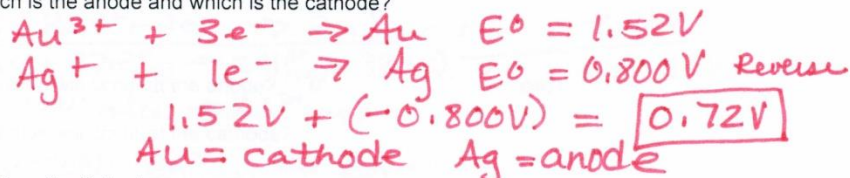 ch is the anode and which is the cathode?
Au³⁺ + 3e⁻ → Au E⁰ = 1.52V
Ag⁺ + 1e⁻ → Ag E⁰ = 0.800V Reverse
1.52V + (-0.800V) = 0.72V
Au = cathode Ag = anode